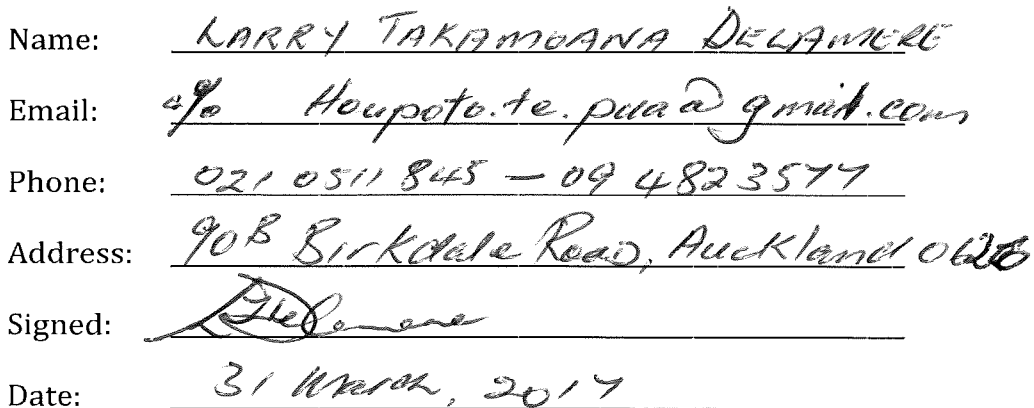 Name: LARRY TAKAMOANA DELAMERE
Email: c/o Houpoto.te.pua@gmail.com
Phone: 021 0511 845 – 09 482 3577
Address: 90B Birkdale Road, Auckland 0626
Signed:
Date: 31 March, 2017